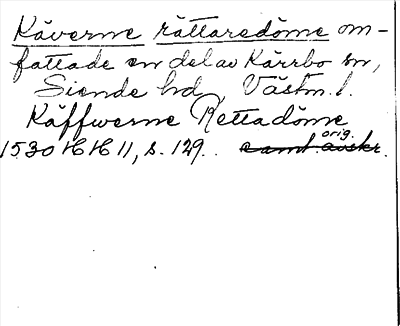 Käverne rättaredöme om-
fattade en del av Kärrbo sn,
Siende hd, Västm. l.
Käffwerne Rettadöme
orig.
1530 HH 11, s. 129. samt. avskr.